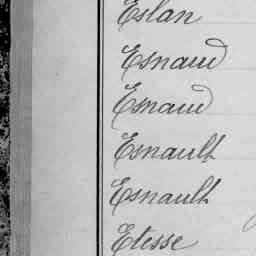 Eslan
Esnaud
Esnaud
Esnault
Esnault
Etesse